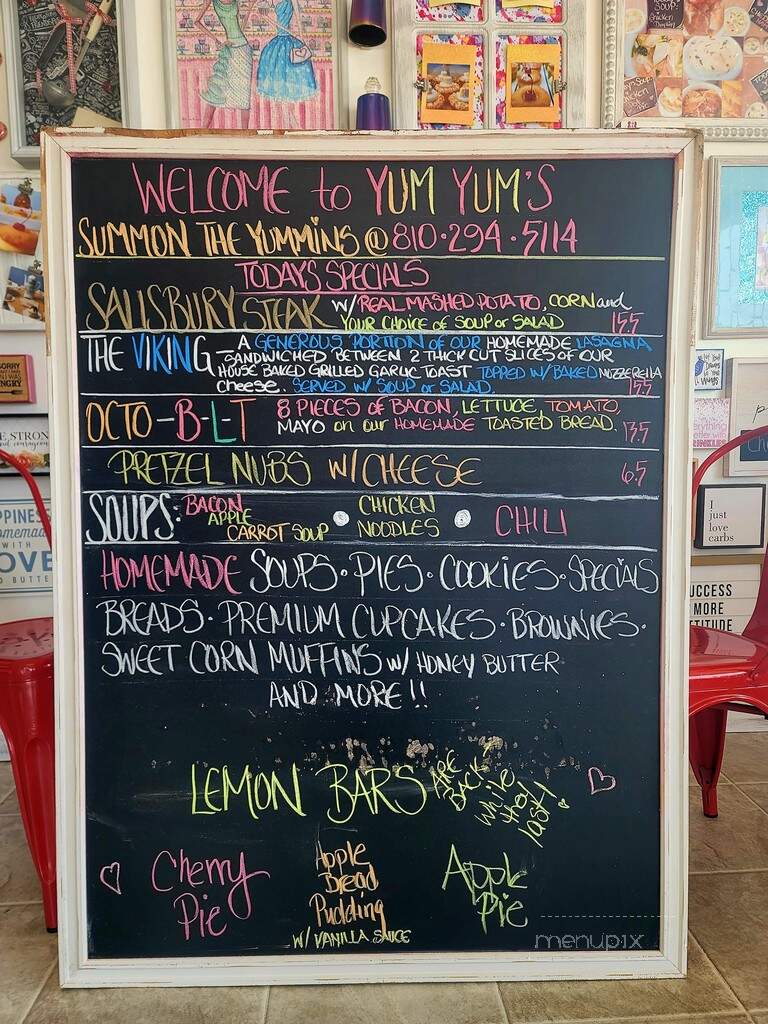 WELCOME to YUM YUM'S
SUMMON THE YUMMINS @ 810·294·5114
TODAY'S SPECIALS
SALISBURY STEAK W/ REAL MASHED POTATO, CORN and
YOUR CHOICE OF SOUP or SALAD 15.5
THE VIKING - A GENEROUS PORTION of OUR HOMEMADE LASAGNA
SANDWICHED BETWEEN 2 THICK CUT SLICES OF OUR
HOUSE BAKED GRILLED GARLIC TOAST TOPPED W/ BAKED MOZZERELLA
cheese. SERVED W/ SOUP or SALAD. 15.5
OCTO-B-L-T 8 PIECES of BACON, LETTUCE, TOMATO,
MAYO on our HOMEMADE TOASTED BREAD. 13.5
PRETZEL NUBS W/ CHEESE 6.5
SOUPS: BACON APPLE CARROT SOUP • CHICKEN NOODLES • CHILI
HOMEMADE SOUPS · PIES · COOKIES · SPECIALS
BREADS · PREMIUM CUPCAKES · BROWNIES ·
SWEET CORN MUFFINS W/ HONEY BUTTER
AND MORE!!
LEMON BARS ARE BACK while they last!
Cherry Pie
Apple Bread Pudding
W/ VANILLA SAUCE
Apple Pie
menupix
I
just
love
carbs